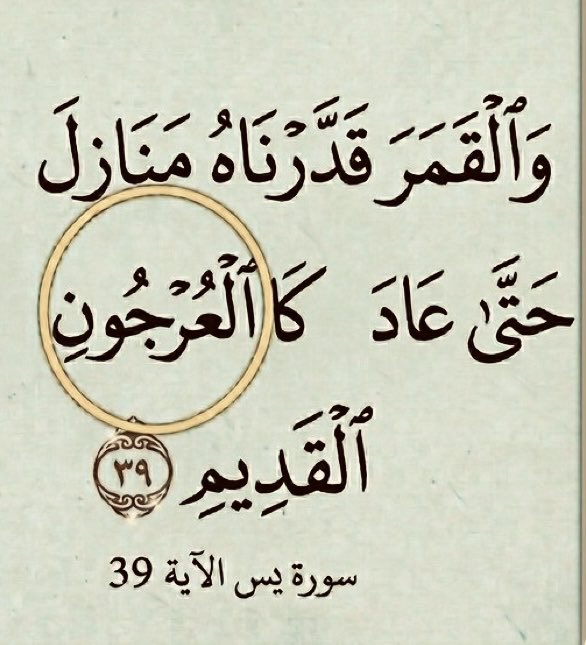 وَٱلْقَمَرَ قَدَّرْنَاهُ مَنَازِلَ
حَتَّىٰ عَادَ كَا ٱلْعُرْجُونِ
ٱلْقَدِيمِ ٣٩
سورة يس الآية 39